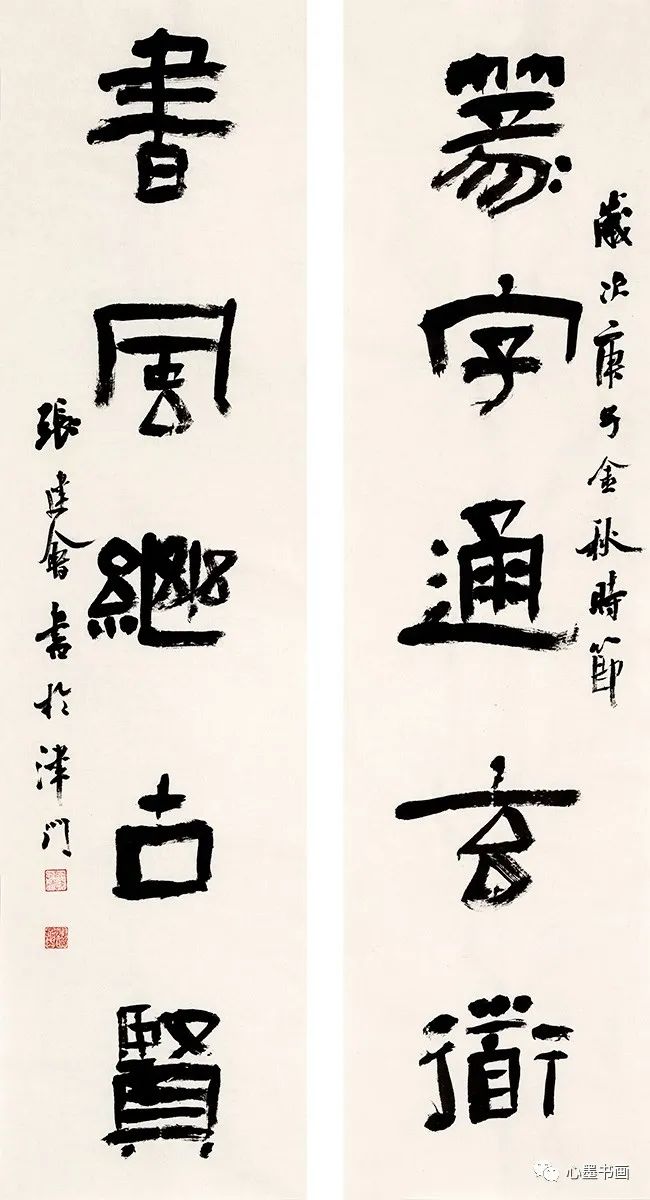 歲次庚子金秋時節
篆字通玄衜
書風繼古賢
張建會書於津門
心墨书画